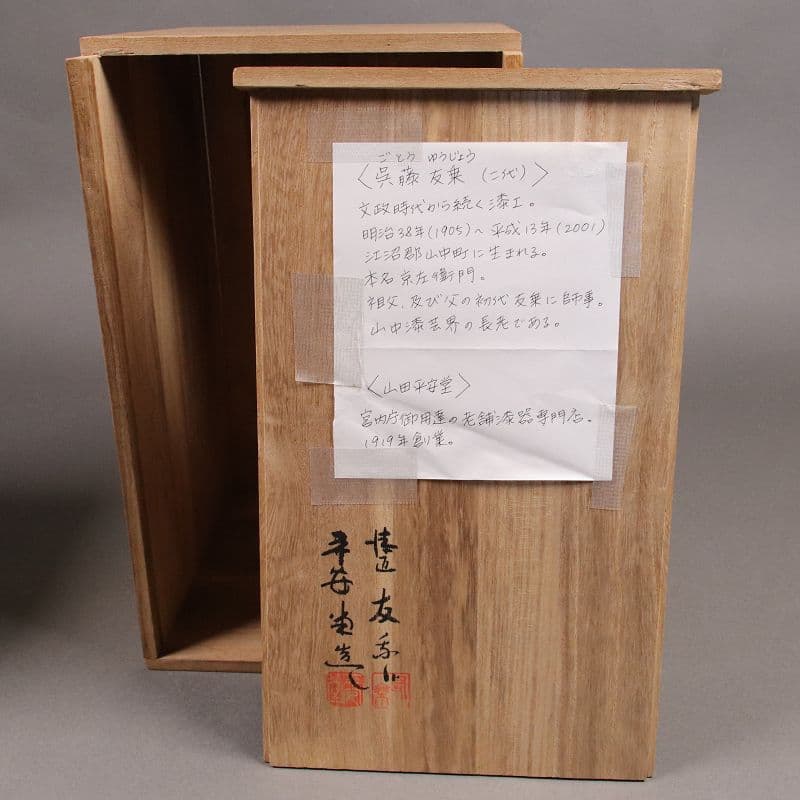 ごとう ゆうじょう
〈呉藤 友乗 (二代)〉
文政時代から続く漆工。
明治38年(1905)～平成13年(2001)
江沼郡山中町に生まれる。
本名京左衛門。
祖父、及び父の初代友乗に師事。
山中漆芸界の長老である。
〈山田平安堂〉
宮内庁御用達の老舗漆器専門店。
1919年創業。
友乗
平安堂造